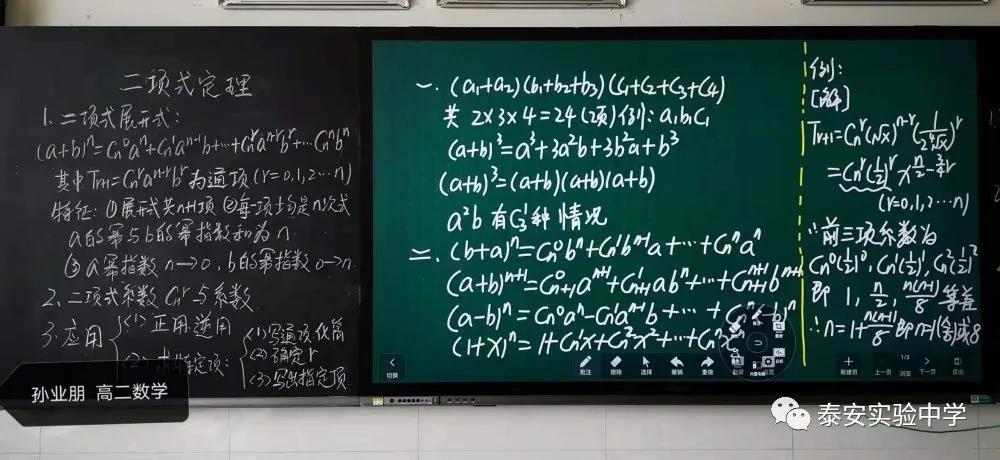 二项式定理
1.二项式展开式:
(a+b)ⁿ=Cn⁰aⁿ+Cn¹aⁿ⁻¹b+…+Cnʳaⁿ⁻ʳbʳ+…Cnⁿbⁿ
其中Tr+1=Cnʳaⁿ⁻ʳbʳ为通项(r=0,1,2…n)
特征:①展开式共n+1项 ②每一项均是n次式
a的幂与b的幂指数和为n.
③a幂指数n→0,b的幂指数0→n.
2、二项式系数Cnʳ与系数
3.应用
<1>正用.逆用
<2>求特定项:
(1)写通项.化简
(2)确定r
(3)写出指定项
一.(a₁+a₂)(b₁+b₂+b₃)(C₁+C₂+C₃+C₄)
共2×3×4=24(项)例:a₁b₁C₁
(a+b)³=a³+3a²b+3b²a+b³
(a+b)³=(a+b)(a+b)(a+b)
a²b有C₃¹种情况
二.(b+a)ⁿ=Cn⁰bⁿ+Cn¹bⁿ⁻¹a+…+Cnⁿaⁿ
(a-b)ⁿ=Cn⁰aⁿ-Cn¹aⁿ⁻¹b+…+
(1+x)ⁿ=1+Cn¹x+Cn²x²+…+Cnⁿxⁿ
例:
[解]
Tr+1=Cnʳ(√x)ⁿ⁻ʳ(
=Cnʳ(½)ʳ
(r=0,1,2…n)
∵前三项系数为
Cn⁰(½)⁰,Cn¹(½)¹,Cn²(½)²
即1,n/2,n(n-1)/8等差
∴n=1+n(n-1)/8即n=1(舍)或8
切换
批注 擦除 选择 撤销 重做
新建页 上一页 1/3 浏览 下一页 退出
孙业朋 高二数学
泰安实验中学